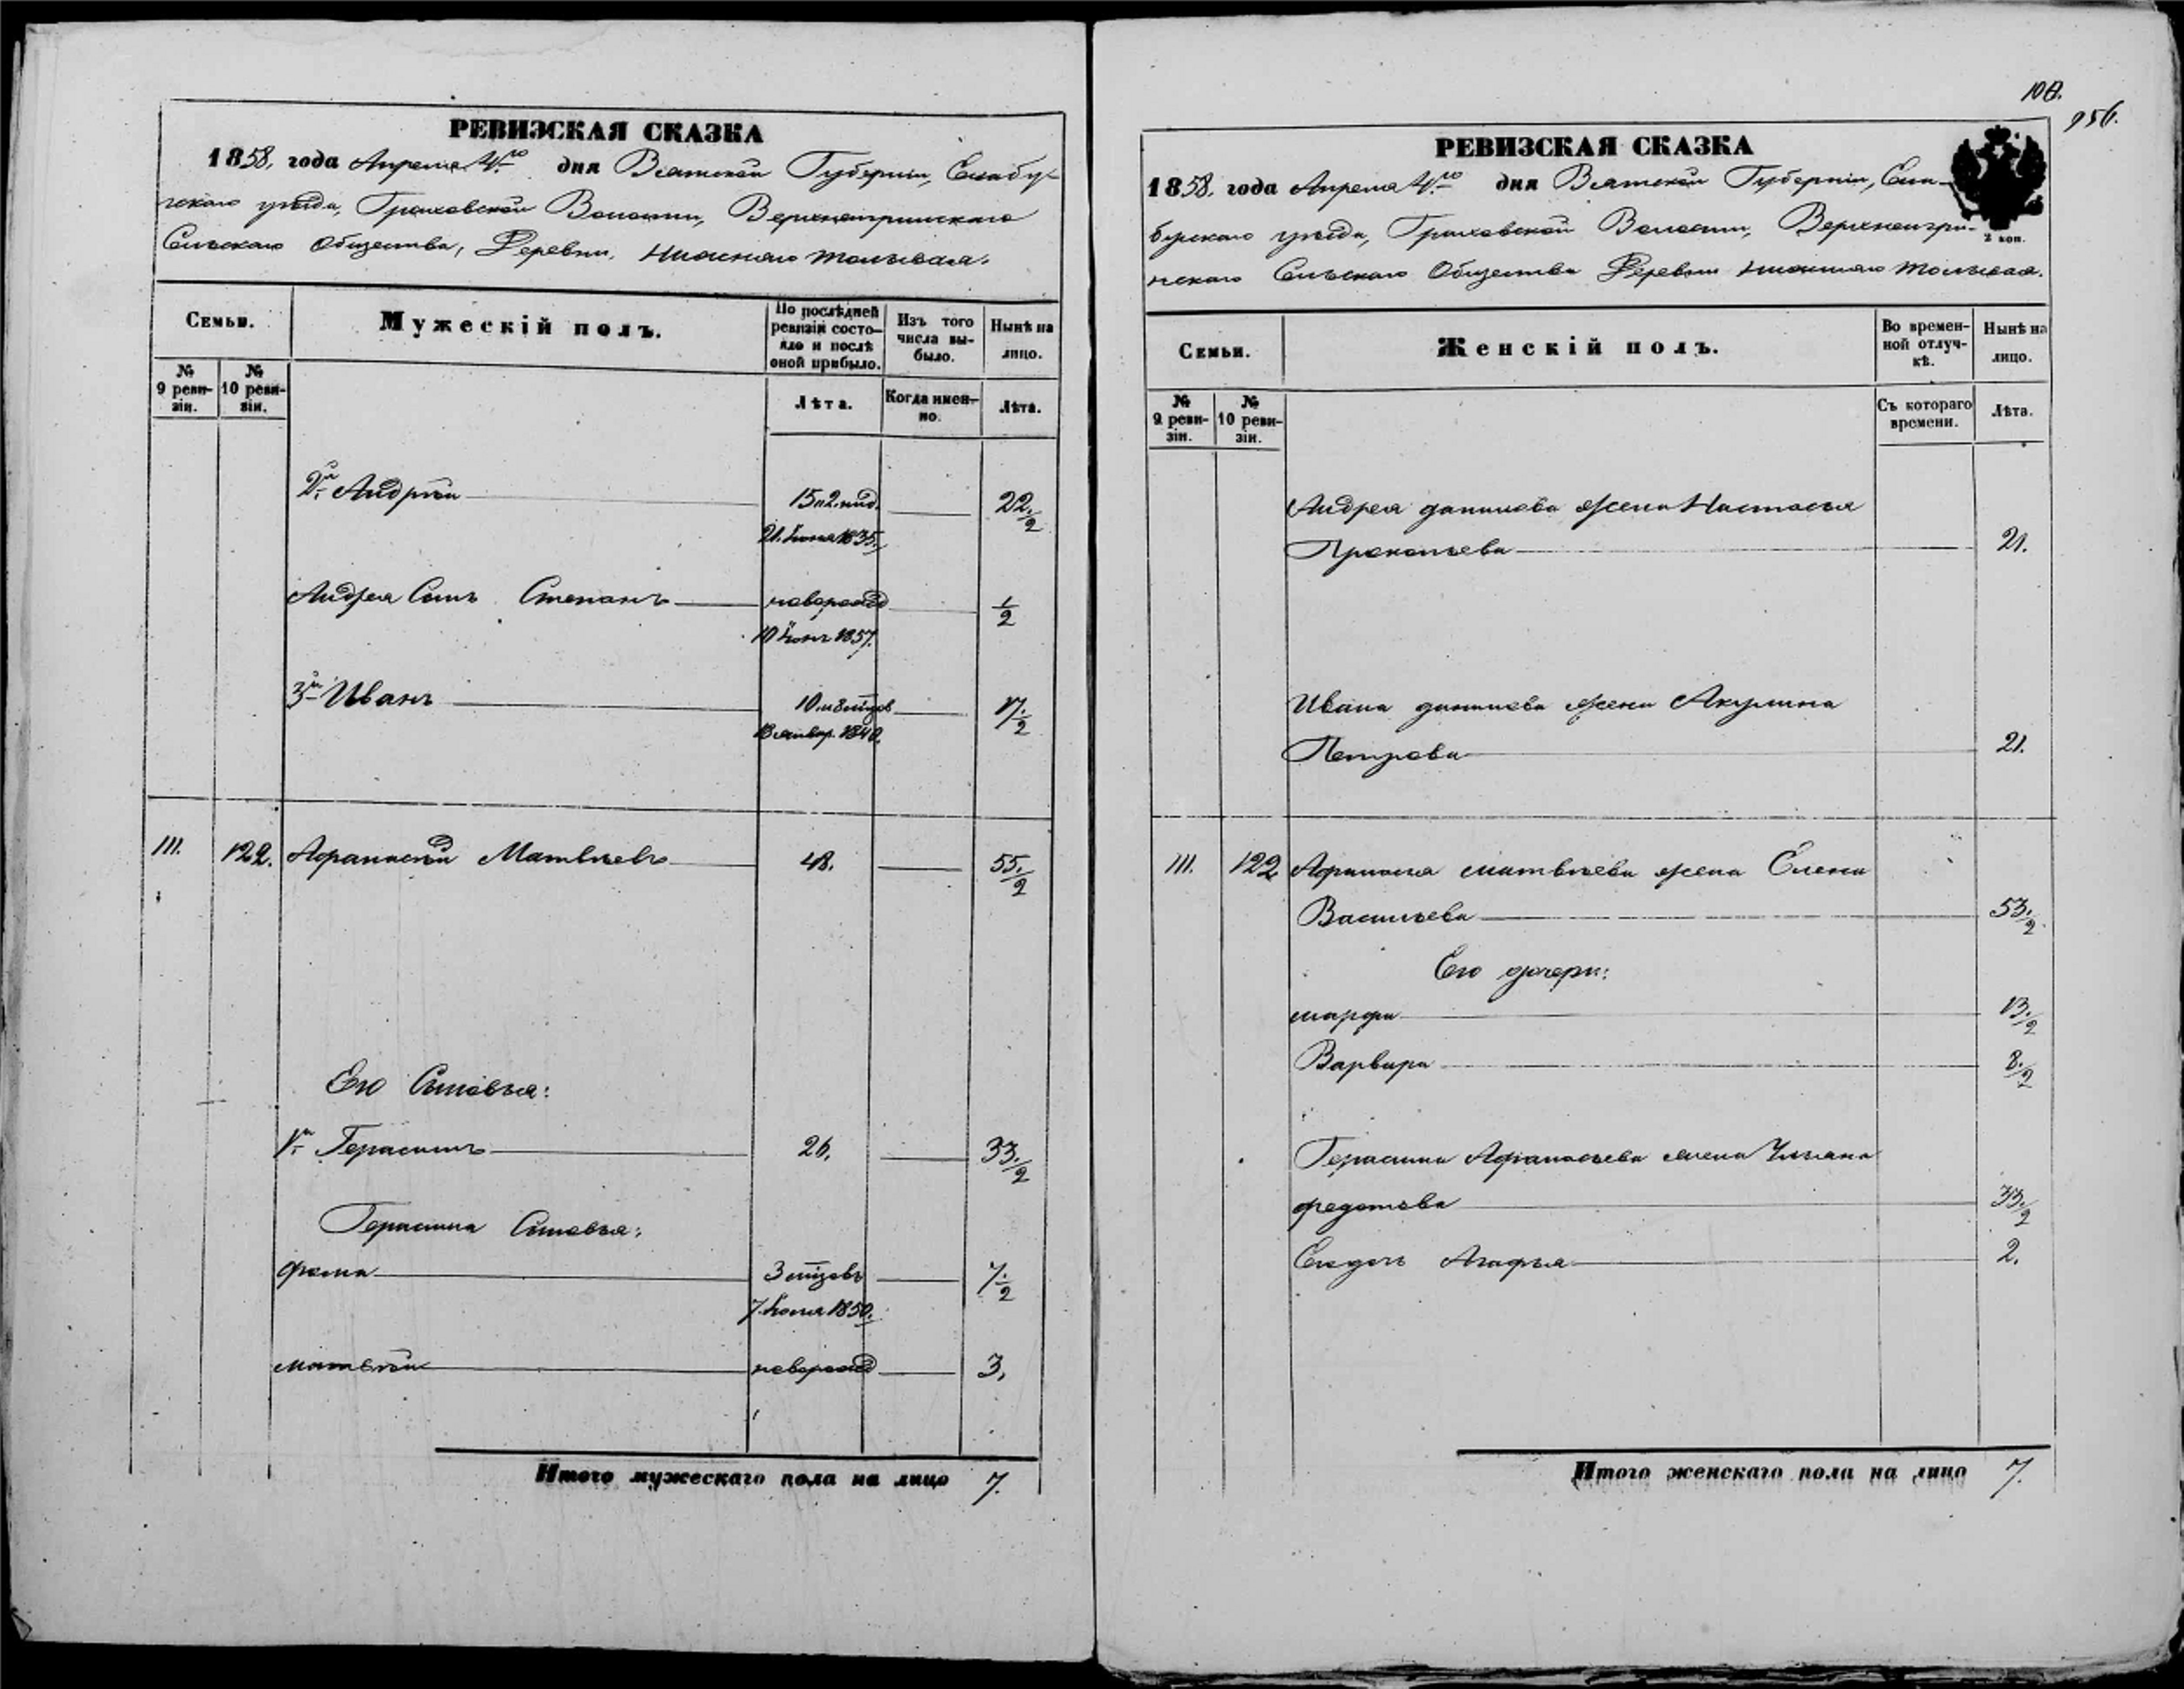 РЕВИЗСКАЯ СКАЗКА
1858. года Апреля 4.го дня Вятской Губерніи, Елабу-
жскаго уѣзда, Граховской Волости, Верхнеигринскаго
Сельскаго Общества, Деревни, Нижняго
Семьи.
Мужескій полъ.
По послѣдней ревизіи состояло и послѣ оной прибыло.
Изъ того числа выбыло.
Нынѣ на лицо.
№ 9 ревизіи.
№ 10 ревизіи.
Лѣта.
Когда именно.
Лѣта.
2й Андрей 15 22.½
21. Іюня 1835.
Андрея Сынъ Степанъ новорожд ½
10 1857.
3й Иванъ 10. и 8 мѣцов 17.½
13 Январ. 1840.
111. 122. Афанасій Матвѣевъ 48. 55.½
Его Сыновья:
1й Герасимъ 26. 33.½
Герасима Сыновья:
Фома 3 мѣцовъ 7.½
7. 1850.
Матвѣй новорожд 3.
Итого мужескаго пола на лицо 7.
956.
РЕВИЗСКАЯ СКАЗКА
1858. года Апреля 4.го дня Вятской Губерніи, Ела-
бужскаго уѣзда, Граховской Волости, Верхнеигри-
нскаго Сельскаго Общества Деревни Нижняго
2 коп.
Семьи.
Женскій полъ.
Во временной отлучкѣ.
Нынѣ на лицо.
№ 9 ревизіи.
№ 10 ревизіи.
Съ котораго времени.
Лѣта.
Андрея Данилова жена Настасья
Прокопьева 21.
Ивана Данилова жена Акулина
Петрова 21.
111. 122 Афанасья Матвѣева жена Елена
Васильева 53.½
Его дочери:
Марфа 13.½
Варвара 8.½
Герасима Афанасьева жена Ульяна
Федотова 33.½
Ея дочь Агафья 2.
Итого женскаго пола на лицо 7.